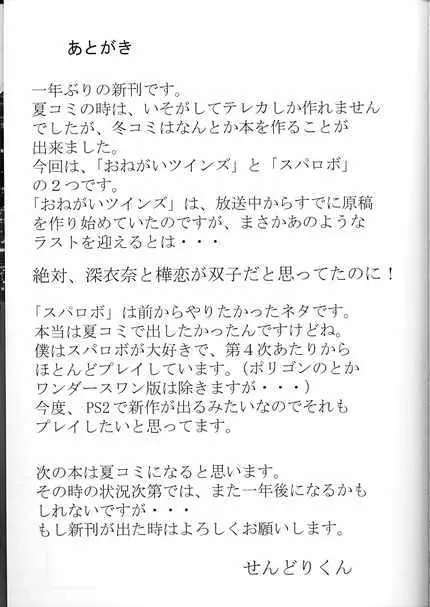 あとがき
一年ぶりの新刊です。
夏コミの時は、いそがしてテレカしか作れません
でしたが、冬コミはなんとか本を作ることが
出来ました。
今回は、「おねがいツインズ」と「スパロボ」
の２つです。
「おねがいツインズ」は、放送中からすでに原稿
を作り始めていたのですが、まさかあのような
ラストを迎えるとは・・・
絶対、深衣奈と樺恋が双子だと思ってたのに！
「スパロボ」は前からやりたかったネタです。
本当は夏コミで出したかったんですけどね。
僕はスパロボが大好きで、第４次あたりから
ほとんどプレイしています。（ポリゴンのとか
ワンダースワン版は除きますが・・・）
今度、PS2で新作が出るみたいなのでそれも
プレイしたいと思ってます。
次の本は夏コミになると思います。
その時の状況次第では、また一年後になるかも
しれないですが・・・
もし新刊が出た時はよろしくお願いします。
せんどりくん